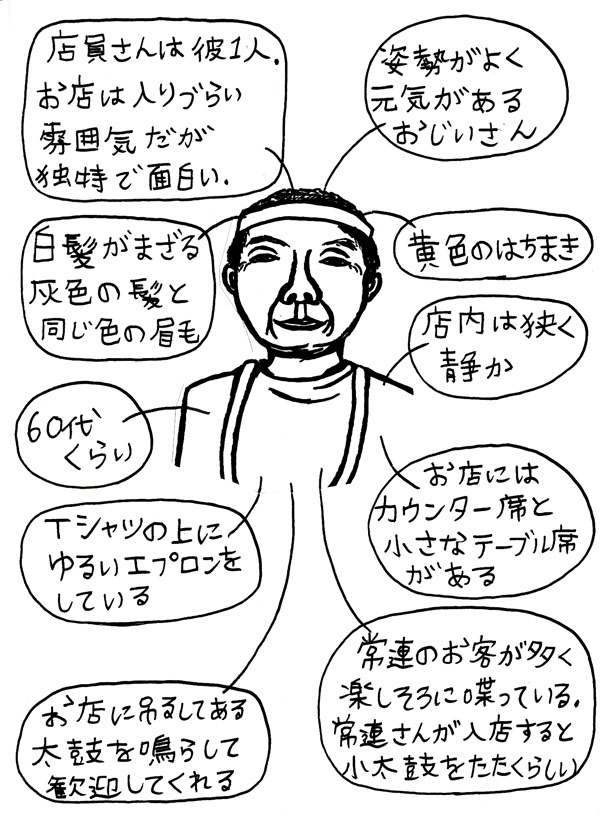 店員さんは彼1人.
お店は入りづらい
雰囲気だが
独特で面白い.
姿勢がよく
元気がある
おじいさん
白髪がまざる
灰色の髪と
同じ色の眉毛
黄色のはちまき
店内は狭く
静か
60代
くらい
お店には
カウンター席と
小さなテーブル席
がある
Tシャツの上に
ゆるいエプロンを
している
常連のお客が多く
楽しそろに喋っている.
常連さんが入店すると
小太鼓をたたくらしい
お店に吊るしてある
太鼓を鳴らして
歓迎してくれる